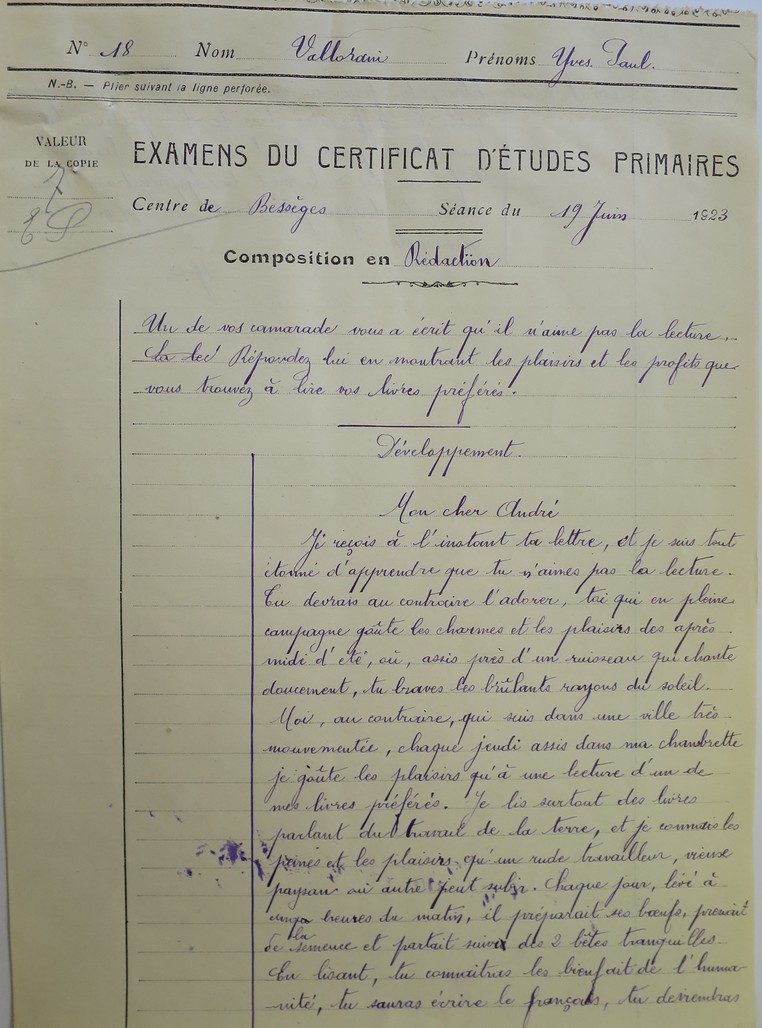 N° 18 Nom Vallorani Prénoms Yves. Paul.
N.-B. — Plier suivant la ligne perforée.
VALEUR
DE LA COPIE
7
EXAMENS DU CERTIFICAT D'ÉTUDES PRIMAIRES
Centre de Bessèges Séance du 19 Juin 1923
Composition en Rédaction
Un de vos camarade vous a écrit qu'il n'aime pas la lecture.
La lec Répondez lui en montrant les plaisirs et les profits que
vous trouvez à lire vos livres préférés.
Développement.
Mon cher André
Je reçois à l'instant ta lettre, et je suis tout
étonné d'apprendre que tu n'aimes pas la lecture.
Tu devrais au contraire l'adorer, toi qui en pleine
campagne goûte les charmes et les plaisirs des après
midi d'été, où, assis près d'un ruisseau qui chante
doucement, tu braves les brûlants rayons du soleil.
Moi, au contraire, qui suis dans une ville très
mouvementée, chaque jeudi assis dans ma chambrette
je goûte les plaisirs qu'à une lecture d'un de
mes livres préférés. Je lis surtout des livres
parlant du travail de la terre, et je connais les
peines et les plaisirs qu'un rude travailleur, vieux
paysan ou autre peut subir. Chaque jour, levé à
heures du matin, il préparait ses bœufs, prenait
de la semence et partait suivi des 2 bêtes tranquilles.
En lisant, tu connaitras les bienfait de l'huma
nité, tu sauras écrire le français, tu deviendras